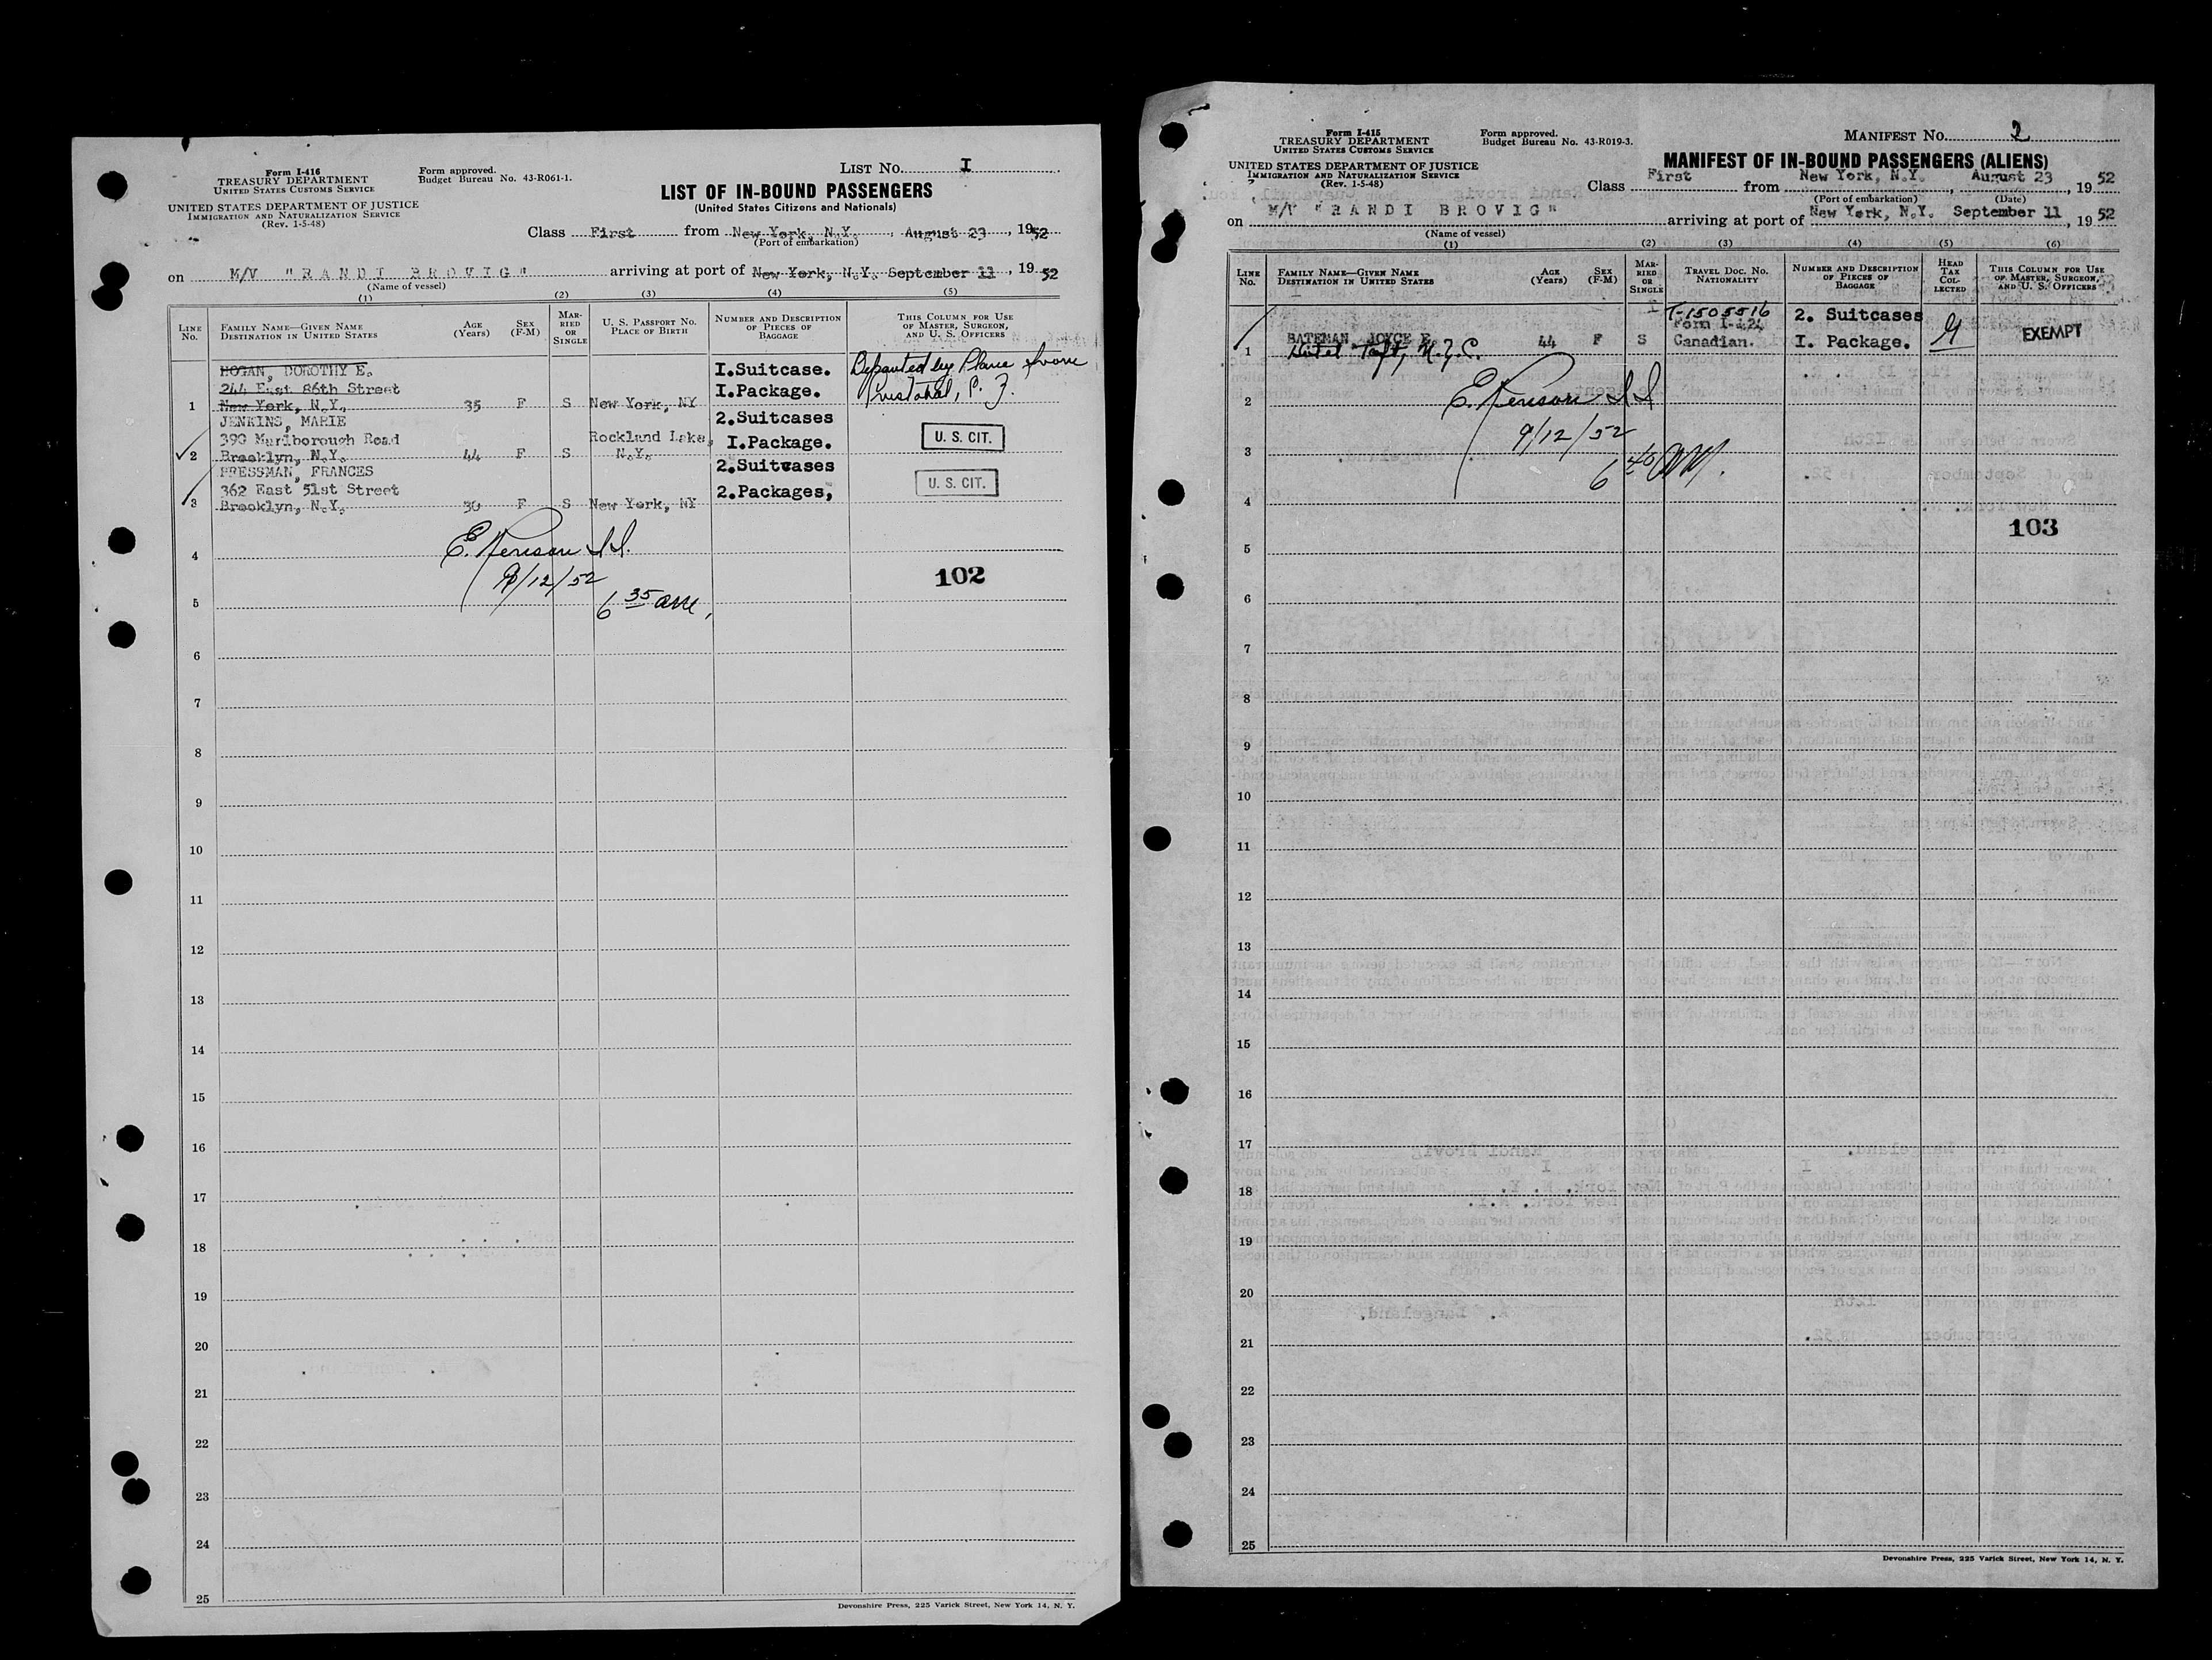 Form I-416
TREASURY DEPARTMENT
UNITED STATES CUSTOMS SERVICE
UNITED STATES DEPARTMENT OF JUSTICE
IMMIGRATION AND NATURALIZATION SERVICE
(Rev. 1-5-48)
Form approved.
Budget Bureau No. 43-R061-1.
LIST No. I
LIST OF IN-BOUND PASSENGERS
(United States Citizens and Nationals)
Class First from New York, N.Y., August 23, 1952
(Port of embarkation)
on M/V "RANDI BROVIG" arriving at port of New York, N.Y. September 11, 1952
(Name of vessel)
(1) (2) (3) (4) (5)
LINE No. FAMILY NAME—GIVEN NAME DESTINATION IN UNITED STATES AGE (Years) SEX (F-M) MARRIED OR SINGLE U. S. PASSPORT No. PLACE OF BIRTH NUMBER AND DESCRIPTION OF PIECES OF BAGGAGE THIS COLUMN FOR USE OF MASTER, SURGEON, AND U. S. OFFICERS
HOGAN, DOROTHY E. I.Suitcase. Departed by Plane from
244 East 86th Street I.Package. Cristobal, C. Z.
1 New York, N.Y. 35 F S New York, NY
JENKINS, MARIE 2.Suitcases
390 Marlborough Road Rockland Lake, I.Package. U. S. CIT.
2 Brooklyn, N.Y. 44 F S N.Y.
PRESSMAN, FRANCES 2.Suitcases
362 East 51st Street 2.Packages, U. S. CIT.
3 Brooklyn, N.Y. 30 F S New York, NY
4 E. Kenison I.I.
9/12/52
102
5 6 35 am.
6
7
8
9
10
11
12
13
14
15
16
17
18
19
20
21
22
23
24
25
Devonshire Press, 225 Varick Street, New York 14, N. Y.
Form I-415
TREASURY DEPARTMENT
UNITED STATES CUSTOMS SERVICE
UNITED STATES DEPARTMENT OF JUSTICE
IMMIGRATION AND NATURALIZATION SERVICE
(Rev. 1-5-48)
Form approved.
Budget Bureau No. 43-R019-3.
MANIFEST No. 2
MANIFEST OF IN-BOUND PASSENGERS (ALIENS)
Class First from New York, N.Y., August 23, 1952
(Port of embarkation) (Date)
on M/V "RANDI BROVIG" arriving at port of New York, N.Y. September 11 1952
(Name of vessel)
(1) (2) (3) (4) (5) (6)
LINE No. FAMILY NAME—GIVEN NAME DESTINATION IN UNITED STATES AGE (Years) SEX (F-M) MARRIED OR SINGLE TRAVEL DOC. No. NATIONALITY NUMBER AND DESCRIPTION OF PIECES OF BAGGAGE HEAD TAX COLLECTED THIS COLUMN FOR USE OF MASTER, SURGEON, AND U. S. OFFICERS
T-1505516 2. Suitcases
Form I-424
BATEMAN JOYCE E. 44 F S Canadian. I. Package. EXEMPT
1 Hotel Taft, N.Y.C.
2 E. Kenison I.I.
9/12/52
3 6 40 AM.
4
103
5
6
7
8
9
10
11
12
13
14
15
16
17
18
19
20
21
22
23
24
25
Devonshire Press, 225 Varick Street, New York 14, N. Y.